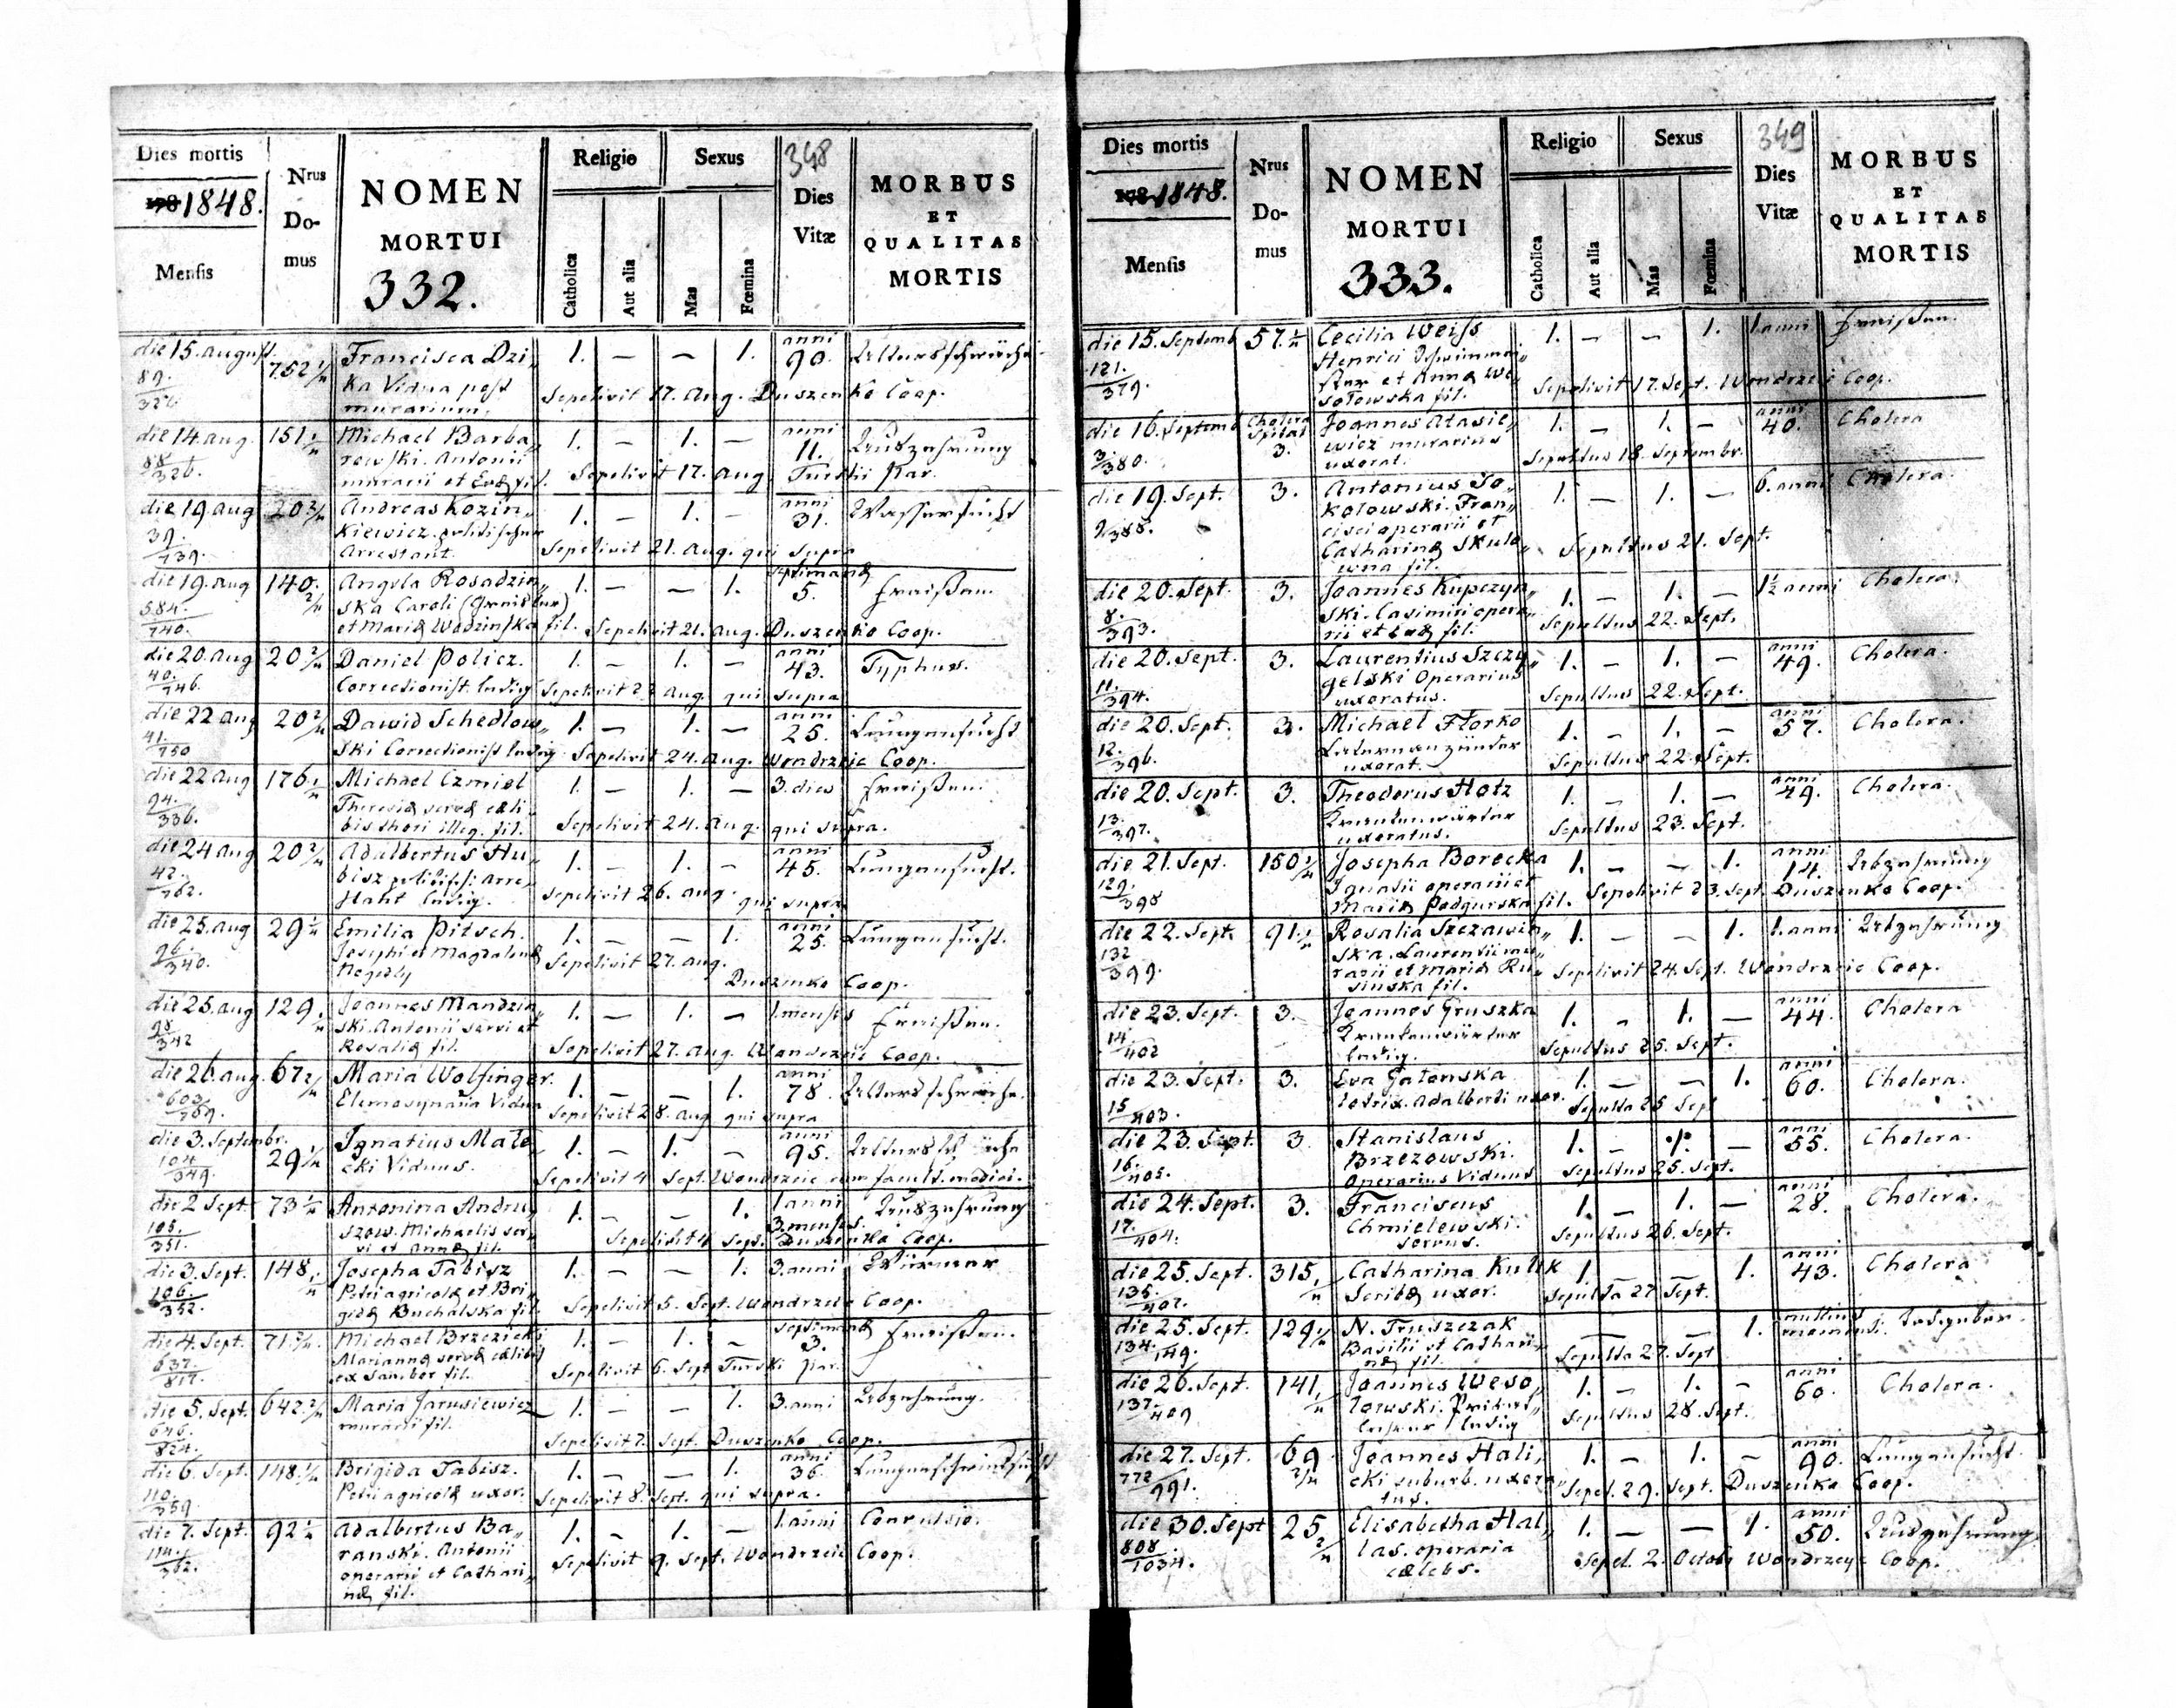 348
Dies mortis
1848.
Mensis
Nrus
Do-
mus
NOMEN
MORTUI
332.
Religio
Catholica
Aut alia
Sexus
Mas
Fœmina
Dies
Vitæ
MORBUS
ET
QUALITAS
MORTIS
die 15. august. 752 1/4 Francisca Dzi„ 1. — — 1. anni 90. Altersschwäche
89. ka Vidua post Sepelivit 17. Aug. Duszenko Coop.
murarium.
die 14 aug. 151 Michael Barba„ 1. — 1. — anni 11. Auszehrung
88/326. rowski. Antonii
murarii et Evæ fil. Sepelivit 17. aug. Turski Par.
die 19 aug 20 3/4 Andreas Kozin„ 1. — 1. — anni 31. Wassersucht
39./739. kiewicz politischer
Arrestant. Sepelivit 21. aug. qui supra
die 19. aug 140. 2/4 Angela Rosadzin„ 1. — — 1. septimanæ 5. Fraißen.
584./740. ska Caroli
et Mariæ Wodzinska fil. Sepelivit 21. aug. Duszenko Coop.
die 20. aug 20 2/4 Daniel Policz. 1. — 1. — anni 43. Typhus.
40./746. Correctionist. ledig Sepelivit 22 aug. qui supra
die 22 aug 20 2/4 Dawid Schedlow„ 1. — 1. — anni 25. Lungensucht
41./750 ski Correctionist ledig Sepelivit 24. aug. Wondrzeic Coop.
die 22 aug 176 Michael Czmiel 1. — 1. — 3. dies Fraißen.
94./336. Theresiæ servæ cæli„
bis thori illeg. fil. Sepelivit 24. aug. qui supra.
die 24 aug 20 2/4 Adalbertus Hu„ 1. — 1. — anni 45. Lungensucht.
42./762. bisz politisch: Arre„
stant ledig. Sepelivit 26. aug. qui supra
die 25. aug 29 Emilia Pitsch. 1. — — 1. anni 25. Lungensucht.
96./340. Josephi et Magdalenæ Sepelivit 27. aug.
Duszenko Coop.
die 25. aug 129. Joannes Mandzin„ 1. — 1. — 1. mensis Fraißen.
98/342 ski. Antonii servi et
Rosaliæ fil. Sepelivit 27. aug. Wondrzeic Coop.
die 26. aug. 67 2/4 Maria Wolfinger. 1. — — 1. anni 78. Altersschwäche.
603/769. Elemosynaria Vidua Sepelivit 28. aug. qui supra
die 3. Septembr. 29 Ignatius Male„ 1. — 1. — anni 95. Altersschwäche
104/349. cki Viduus. Sepelivit 4 Sept. Wondrzeic cum facult. medici.
die 2 Sept. 73 Antonina Andru„ 1. — — 1. 1 anni 3. menses. Auszehrung
105./351. szow. Michaelis ser„
vi et Annæ fil. Sepelivit 4 Sept. Duszenko Coop.
die 3. Sept. 148 Josepha Tabisz 1. — — 1. 3. anni Würmer
106./352. Petri agricolæ et Bri„
gidæ Buchalska fil. Sepelivit 5. Sept. Wondrzeic Coop.
die 4. Sept. 71 Michael Brzezicki 1. — 1. — septimanæ 3. Fraißen.
637./817. Mariannæ servæ cælibis
ex Sambor fil. Sepelivit 6. Sept Turski Par.
die 5. Sept. 642 Maria Jarusiewicz 1. — — 1. 3. anni Abzehrung.
646./824. murarii fil. Sepelivit 7. Sept. Duszenko Coop.
die 6. Sept. 148. Brigida Tabisz. 1. — — 1. anni 36. Lungenschwindsucht
110./359. Petri agricolæ uxor. Sepelivit 8. Sept. qui supra.
die 7. Sept. 92 Adalbertus Ba„ 1. — 1. — 1. anni Convulsio.
114./362. ranski. Antonii Sepelivit 9. Sept. Wondrzeic Coop.
operarii et Cathari„
næ fil.
349
Dies mortis
1848.
Mensis
Nrus
Do-
mus
NOMEN
MORTUI
333.
Religio
Catholica
Aut alia
Sexus
Mas
Fœmina
Dies
Vitæ
MORBUS
ET
QUALITAS
MORTIS
die 15. Septemb 57. Cecilia Weiss 1. — — 1. 1. anni Fraißen.
121./379. Henrici Schwimmei„
ster et Annæ We„ Sepelivit 17. Sept. Wondrzeic Coop.
sołowska fil.
die 16. Septemb Cholera Spital 3. Joannes Atasie„ 1. — 1. — anni 40. Cholera
3/380. wicz murarius
uxorat. Sepultus 18. Septembr.
die 19. Sept. 3. Antonius So„ 1. — 1. — 6. anni Cholera.
9/388. kolowski. Fran„
cisci operarii et
Catharinæ Skula„ Sepultus 21. Sept.
wna fil.
die 20. Sept. 3. Joannes Kupczyn„ 1. — 1. — 1½ anni Cholera
8./393. ski. Casimiri opera„
rii et Evæ fil. Sepultus 22. Sept.
die 20. Sept. 3. Laurentius Szczy„ 1. — 1. — anni 49. Cholera.
11./394. gelski Operarius
uxoratus. Sepultus 22. Sept.
die 20. Sept. 3. Michael Florko 1. — 1. — anni 57. Cholera.
12./396. Laternanzünder
uxorat. Sepultus 22. Sept.
die 20. Sept. 3. Theodorus Hotz 1. — 1. — anni 49. Cholera.
13./397. Krankenwärter
uxoratus. Sepultus 23. Sept.
die 21. Sept. 150 Josepha Borecka 1. — — 1. anni 14. Abzehrung
129./398 Ignatii operarii et
Mariæ Podgurska fil. Sepelivit 23. Sept. Duszenko Coop.
die 22. Sept. 91. Rosalia Szczawin„ 1. — — 1. 1. anni Abzehrung
132/399. ska. Laurentii mu„
rarii et Mariæ Ru„ Sepelivit 24. Sept. Wondrzeic Coop.
sinska fil.
die 23. Sept. 3. Joannes Gruszka 1. — 1. — anni 44. Cholera
14./402 Krankenwärter
ledig. Sepultus 25. Sept.
die 23. Sept. 3. Eva Gatonska 1. — — 1. anni 60. Cholera.
15/403. lotrix. Adalberti uxor. Sepulta 25 Sept
die 23. Sept. 3. Stanislaus 1. — 1. — anni 55. Cholera.
16./405. Brzezowski.
Operarius Viduus Sepultus 25. Sept.
die 24. Sept. 3. Franciscus 1. — 1. — anni 28. Cholera.
17./404. Chmielewski.
servus. Sepultus 26. Sept.
die 25. Sept. 315. Catharina Kulik 1. 1. anni 43. Cholera
135./407. Scribæ uxor. Sepulta 27 Sept.
die 25. Sept. 129 N. Truszczak — — 1. nullius momenti.
134./149. Basilii et Cathari„
næ fil. Sepulta 27. Sept
die 26. Sept. 141. Joannes Weso„ 1. — 1. — anni 60. Cholera.
137./409 lowski. Privat„
lehrer ledig Sepultus 28. Sept.
die 27. Sept. 69 2/4 Joannes Hali„ 1. — 1. — anni 90. Lungensucht.
772/991. cki suburb. uxora„
tus. Sepel. 29. Sept. Duszenko Coop.
die 30. Sept 25 2/4 Elisabetha Hal„ 1. — — 1. anni 50. Auszehrung
808/1034. las. operaria
cælebs. Sepel. 2. Octobr Wondrzeyc Coop.